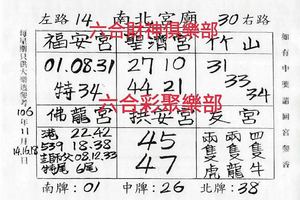 左路 14 南北宮廟 30 右路
福安宮 聖清宮 竹山
01.08.31 27 10 31
特34 44 21 33
34
六合財神俱樂部
六合彩聚樂部
佛龍宮 拱安宮 友宮
港 22.42 45 兩隻虎 兩隻龍 四隻牛
539 18.38 47
08.12.33
特尾 6尾
南牌:01 中牌:26 北牌:38
每星期只供大樂透參考
106年11月
14.16.18
如有中獎請回宮答謝